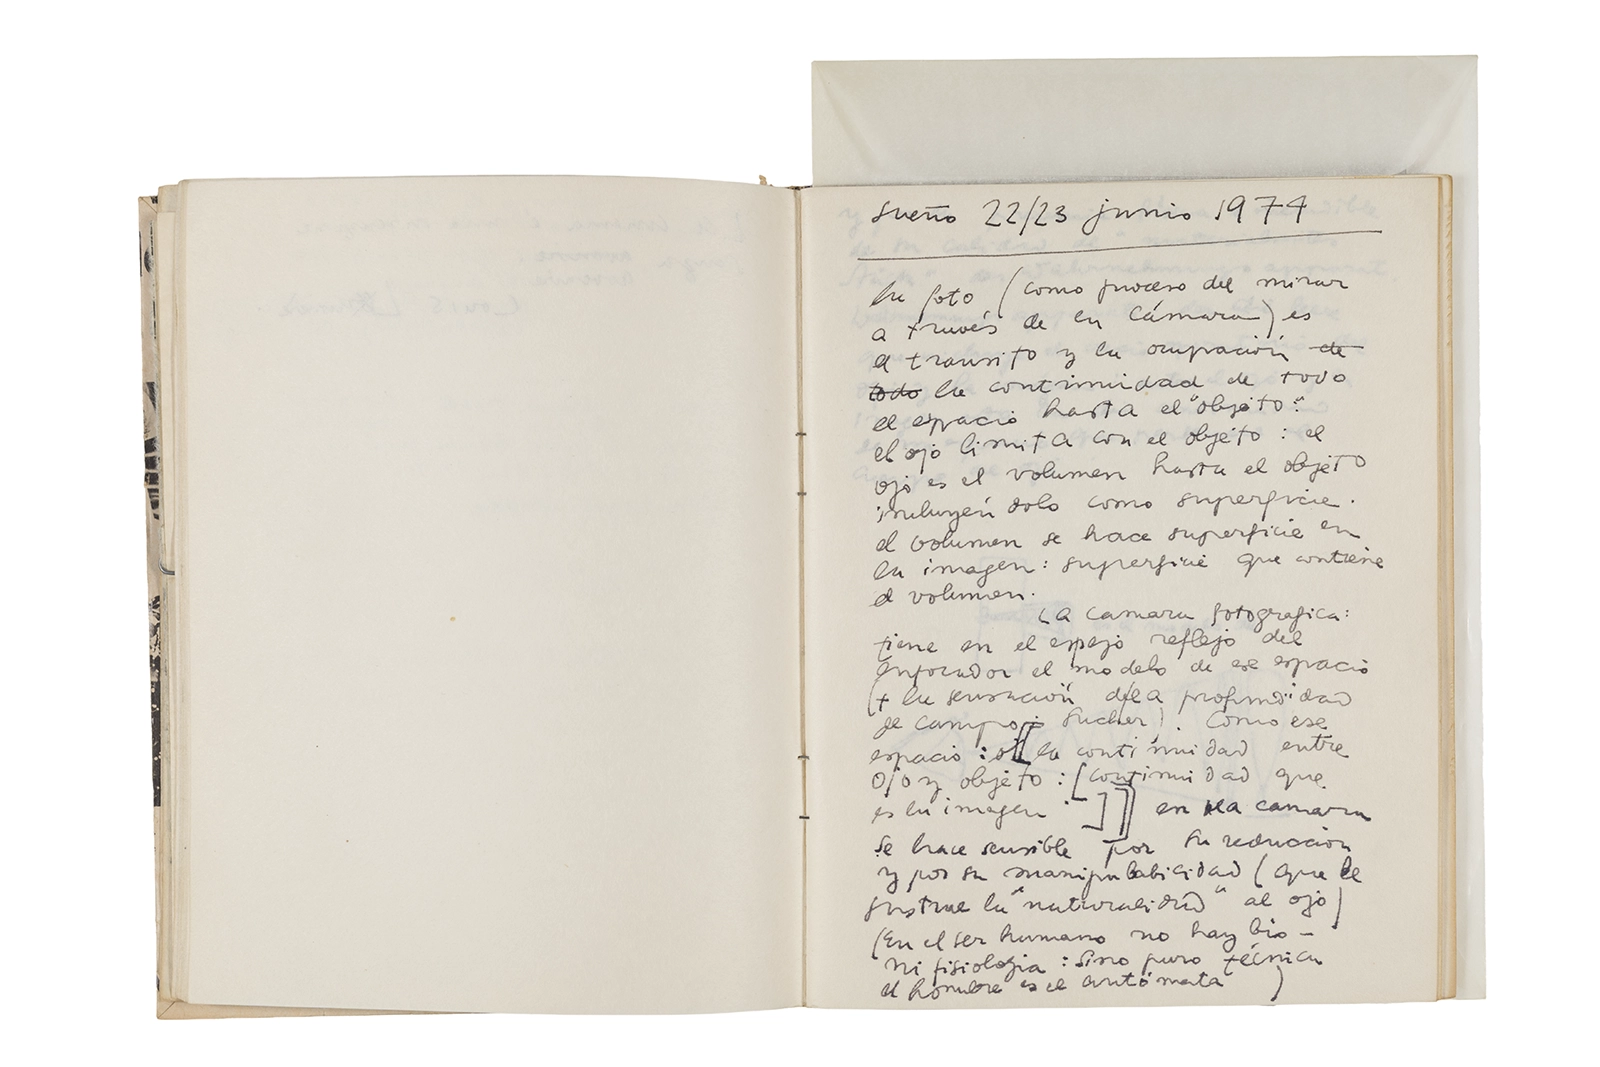 sueño 22/23 junio 1974
la foto (como proceso del mirar
a través de la cámara) es
el transito y la ocupación de
todo la continuidad de todo
el espacio hasta el "objeto":
el ojo limita con el objeto : el
ojo es el volumen hasta el objeto
incluyéndolo como superficie.
el volumen se hace superficie en
la imagen : superficie que contiene
el volumen.
La camara fotografica:
tiene en el espejo reflejo del
enfocador el modelo de ese espacio
(+ la sensación de la profundidad
de campo : sucher). Como ese
espacio : [[la continuidad entre
ojo y objeto : [continuidad que
es la imagen ]]] en la camara
se hace sensible por su reducción
y por su manipulabilidad (que le
sustrae la "naturalidad" al ojo)
(En el ser humano no hay bio-
ni fisiologia : sino puro técnica
el hombre es el autómata )